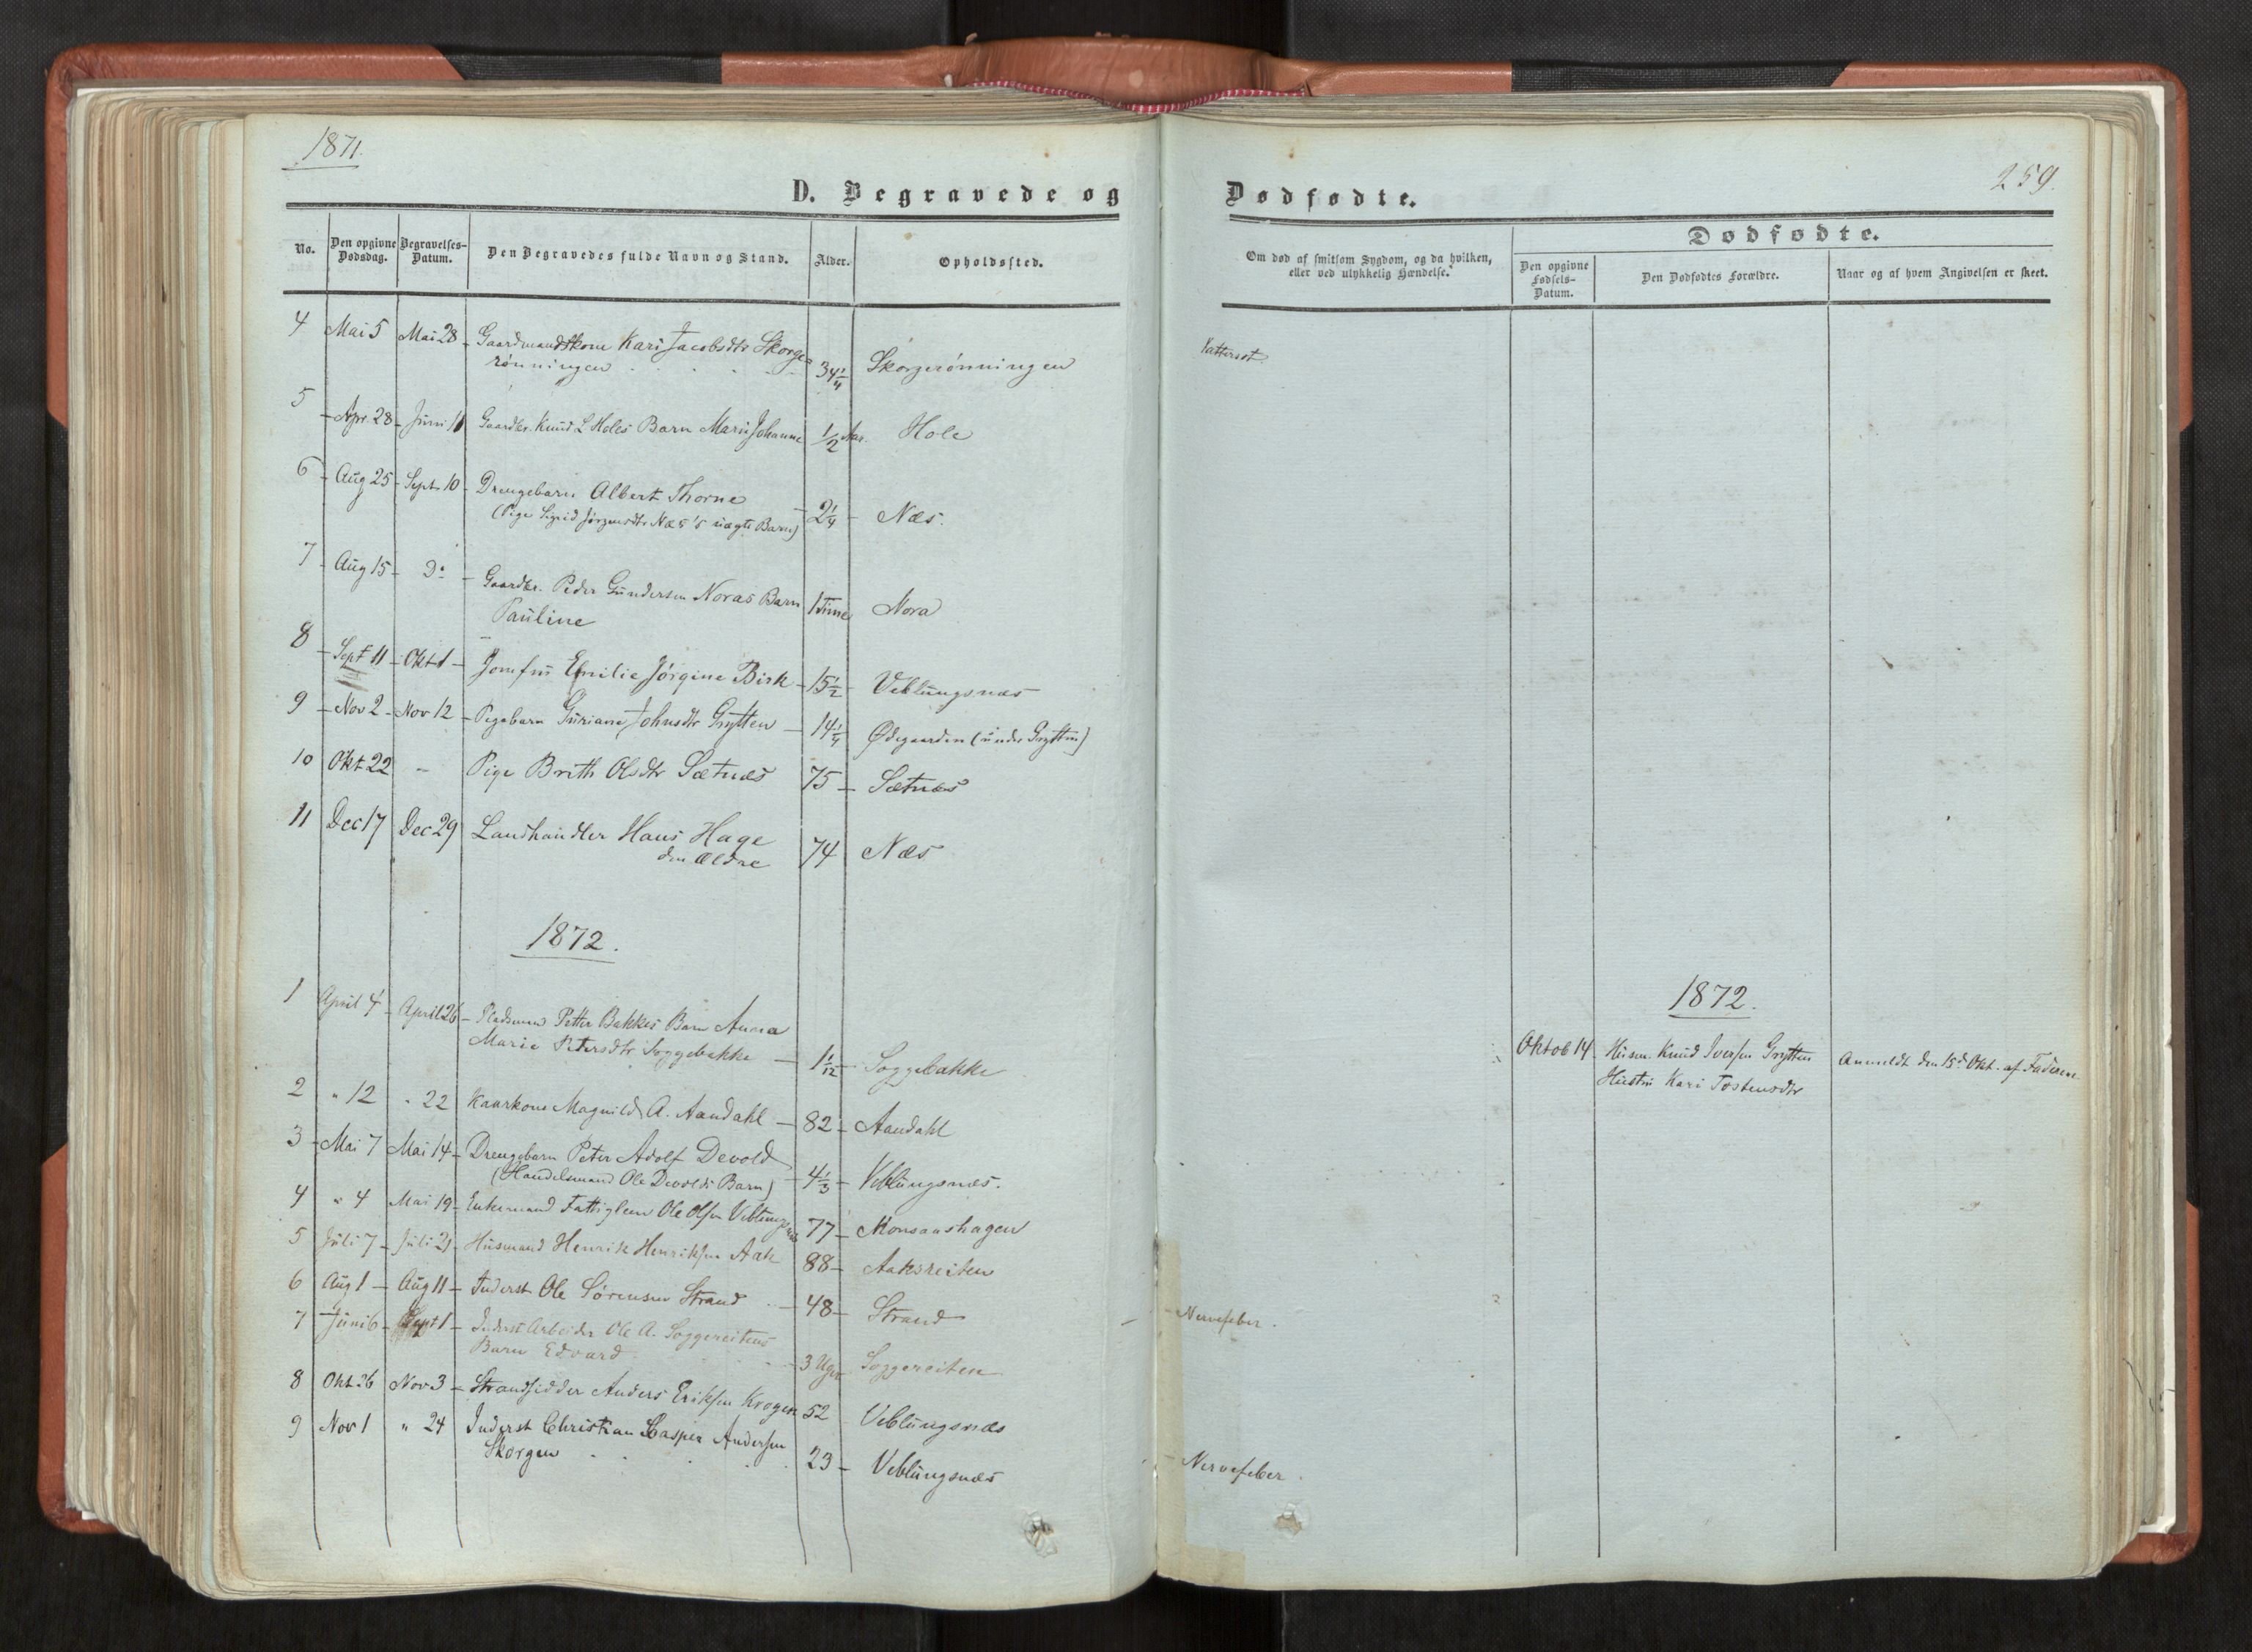 1871.
D. Begravede og
No.
Den opgivne Dødsdag.
Begravelses-Datum.
Den Begravedes fulde Navn og Stand.
Alder.
Opholdssted.
4 Mai 5 Mai 28 - Gaardmandskone Kari Jacobsdtr Skorge=
rønningen 34 1/4 Skorgerønningen
5 - Apr. 28 - Juni 11 Gaardbr. Knud L Holes Barn Marie Johanne 1/2 Aar. Hole
6 - Aug 25 - Sept. 10 - Drengebarn Albert Thorne
(Pige Sigrid Jørgensdtr Næs's uægte Barn) - 2 1/4 - Næs.
7 - Aug 15 - Do - Gaardbr. Peder Gundersen Noras Barn 1 Time Nora
Pauline
8 - Sept 11 - Okt 1 - Jomfru Emilie Jørgine Birk - 15 1/2 - Veblungsnæs
9 - Nov 2 - Nov 12 - Pigebarn Guriane Johnsdtr Grytten - 14 1/4 Ødegaarden (under Grytten)
10 Okt 22 - Pige Brith Olsdtr Sætnæs 75 - Sætnæs
11 Dec 17 Dec 29 Landhandler Hans Hage
den ældre 74 Næs
1872.
1 April 4 - April 26 - Pladsmand Petter Bakkes Barn Anna
Marie Petersdtr Soggebakke - 1 1/12 - Soggebakke
2 " 12 " 22 Kaarkone Magnild A. Aandahl - 82 - Aandahl
3 - Mai 7 Mai 14 - Drengebarn Peter Adolf Devold
(Handelsmand Ole Devolds Barn) - 4 1/3 - Veblungsnæs.
4 " 4 Mai 19 - Enkemand Fattiglem Ole Olsen Veblungsnæs 77 - Monsaashagen
5 Juli 7 - Juli 21 - Husmand Henrik Henriksen Aak 88 - Aaksreiten
6 Aug 1 - Aug 11 - Inderst Ole Sørensen Strand - 48 - Strand
7 - Juni 6 - Sept 1 - Inderst Arbeider Ole A. Soggereitens
Barn Edvard - 3 Uger Soggereiten
8 Okt 26 Nov 3 - Strandsidder Anders Eriksen Krogen 52 Veblungsnæs
9 Nov 1 " 24 Inderst Christian Casper Andersen
Skorgen 23 - Veblungsnæs
259.
Dødfødte.
Om død af smitsom Sygdom, og da hvilken, eller ved ulykkelig Hændelse.
Dødfødte.
Den opgivne Fødsels-Datum.
Den Dødfødtes Forældre.
Naar og af hvem Angivelsen er skeet.
1872.
Oktob 14 - Husm. Knud Iversen Grytten Anmeldt den 15d Okt. af Faderen
Hustru Kari Tostensdtr
- Nervefeber.
- Nervefeber.